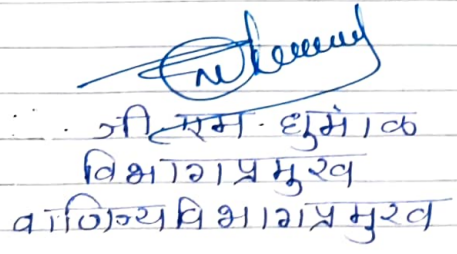 जी. एम. धुमाळ
विभाग प्रमुख
वाणिज्य विभाग प्रमुख